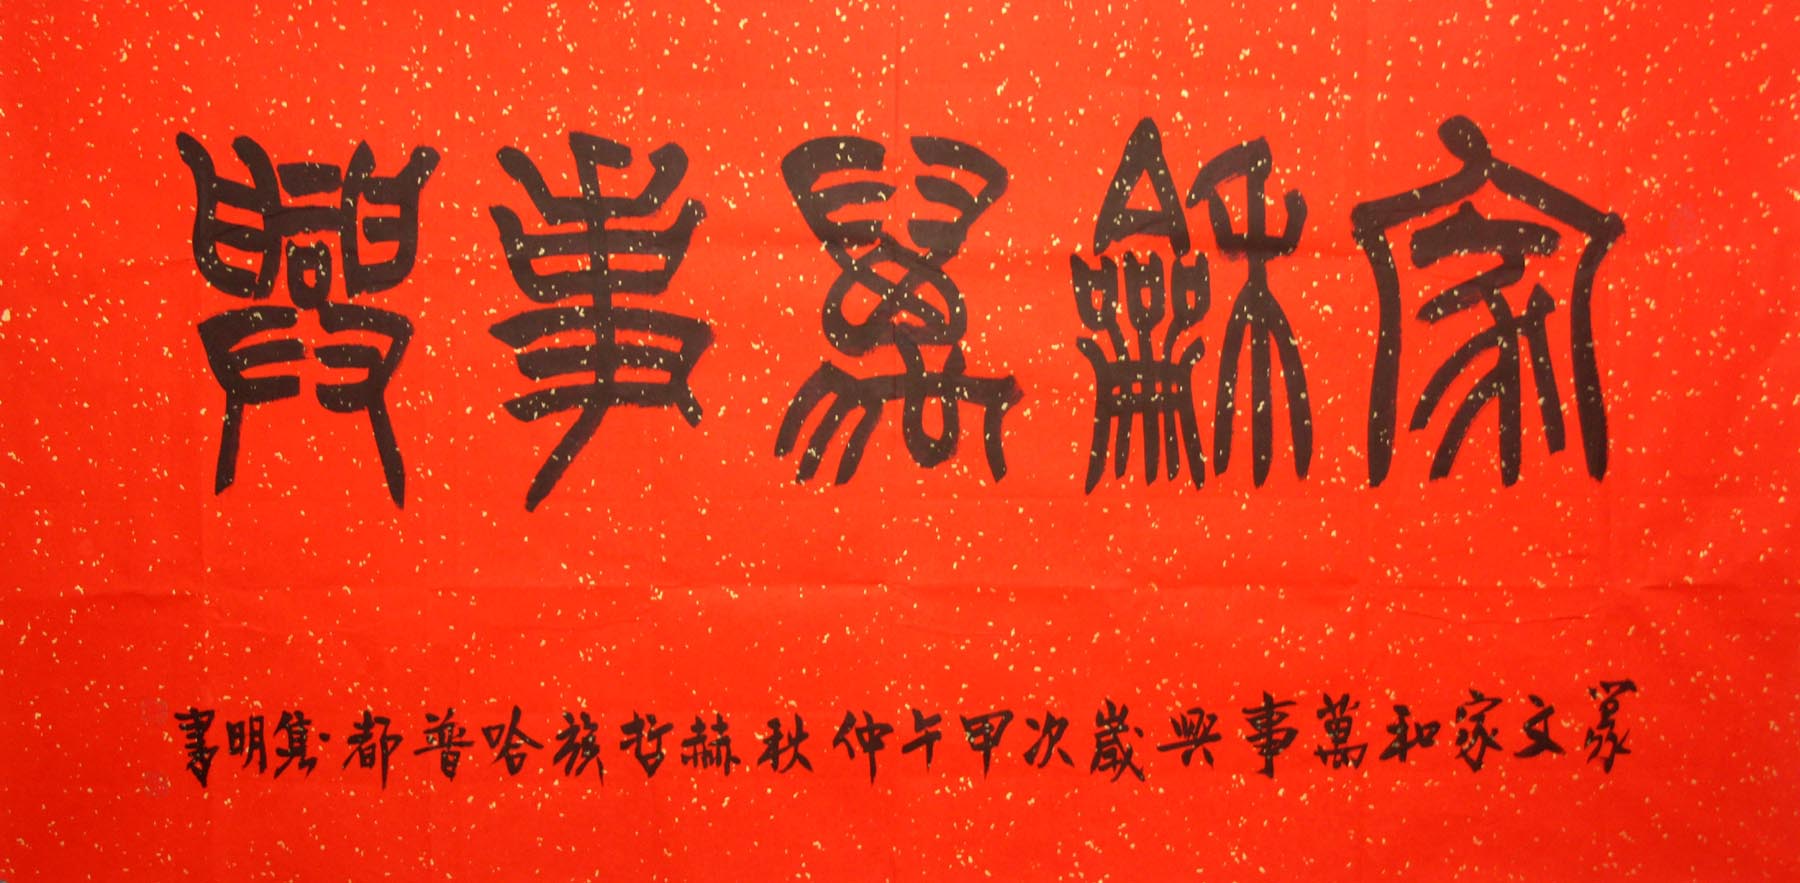 家龢萬事興
篆文家和萬事興歲次甲午仲秋赫哲族哈普都·隽明書